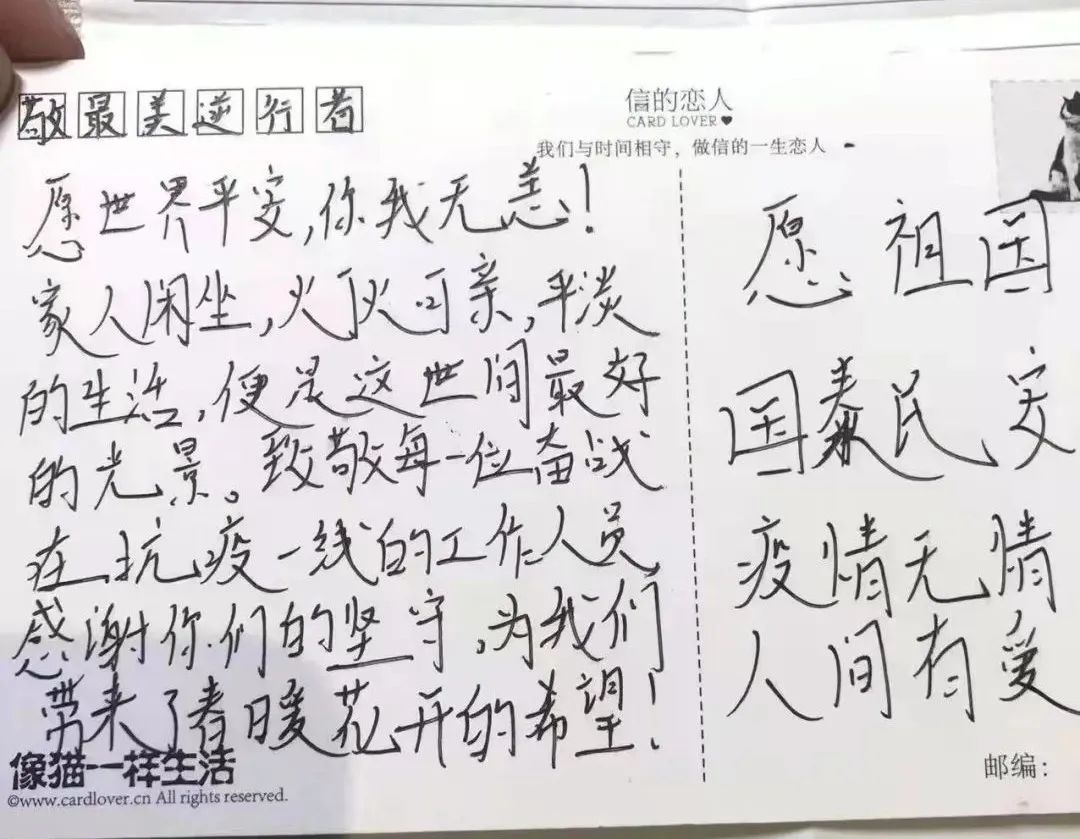 敬最美逆行者
信的恋人
CARD LOVER♥
我们与时间相守，做信的一生恋人
愿世界平安,你我无恙!
家人闲坐,火灰可亲,平淡
的生活,便是这世间最好
的光景。致敬每一位奋战
在抗疫一线的工作人员
感谢你们的坚守,为我们
带来了春日暖花开的希望!
愿祖国
国泰民安
疫情无情
人间有爱
像猫一样生活
©www.cardlover.cn All rights reserved.
邮编: